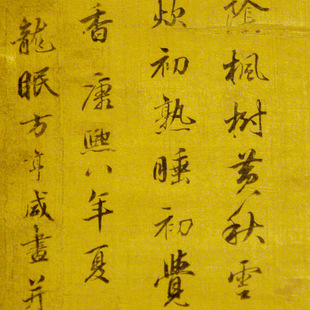 陰楓樹黄秋雲
炊初熟睡初覺
香康熙八年夏
龍眠方亨咸畫并